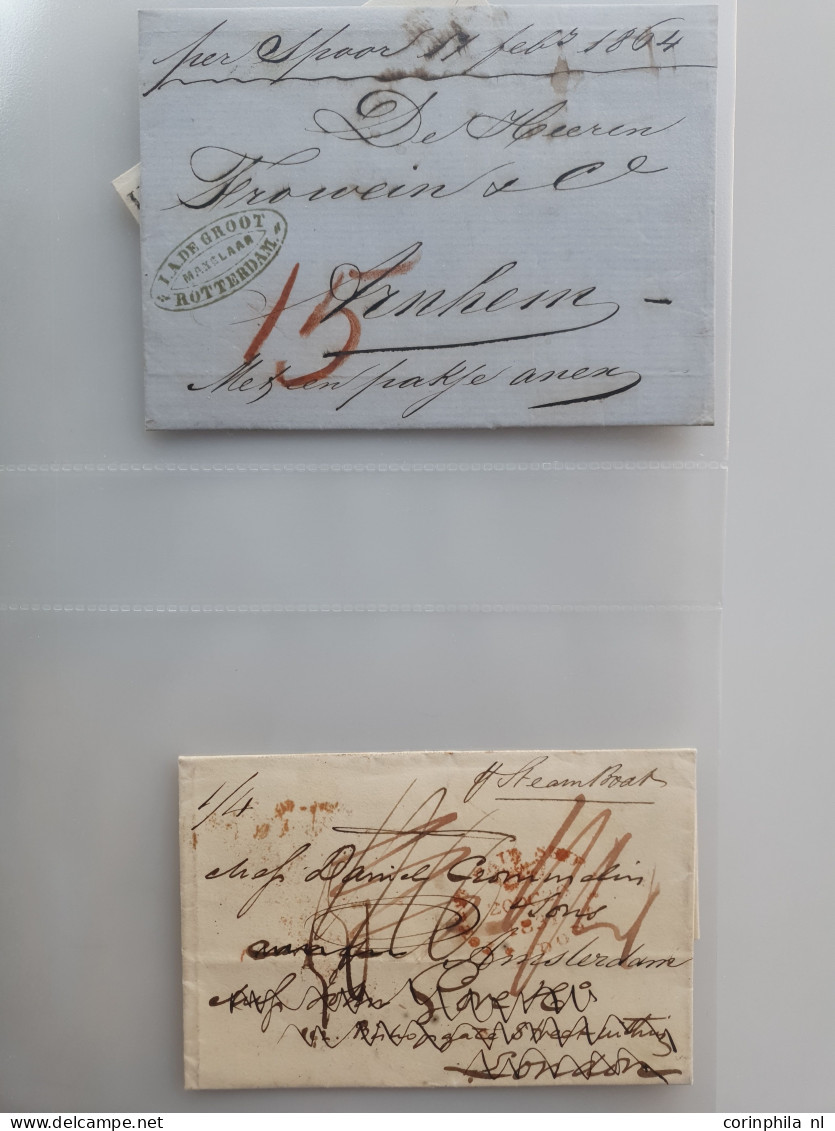 per Spoor 17 feb.r 1864
De Heeren
Frowein & Co
I.A. DE GROOT
MAKELAAR
ROTTERDAM.
15
Arnhem
Met een pakje anex
1/4
p Steam Boat
Mess Daniel Crommelin
& Sons
Amsterdam
Mess John
Bishopsgate Street within
London
corinphila nl